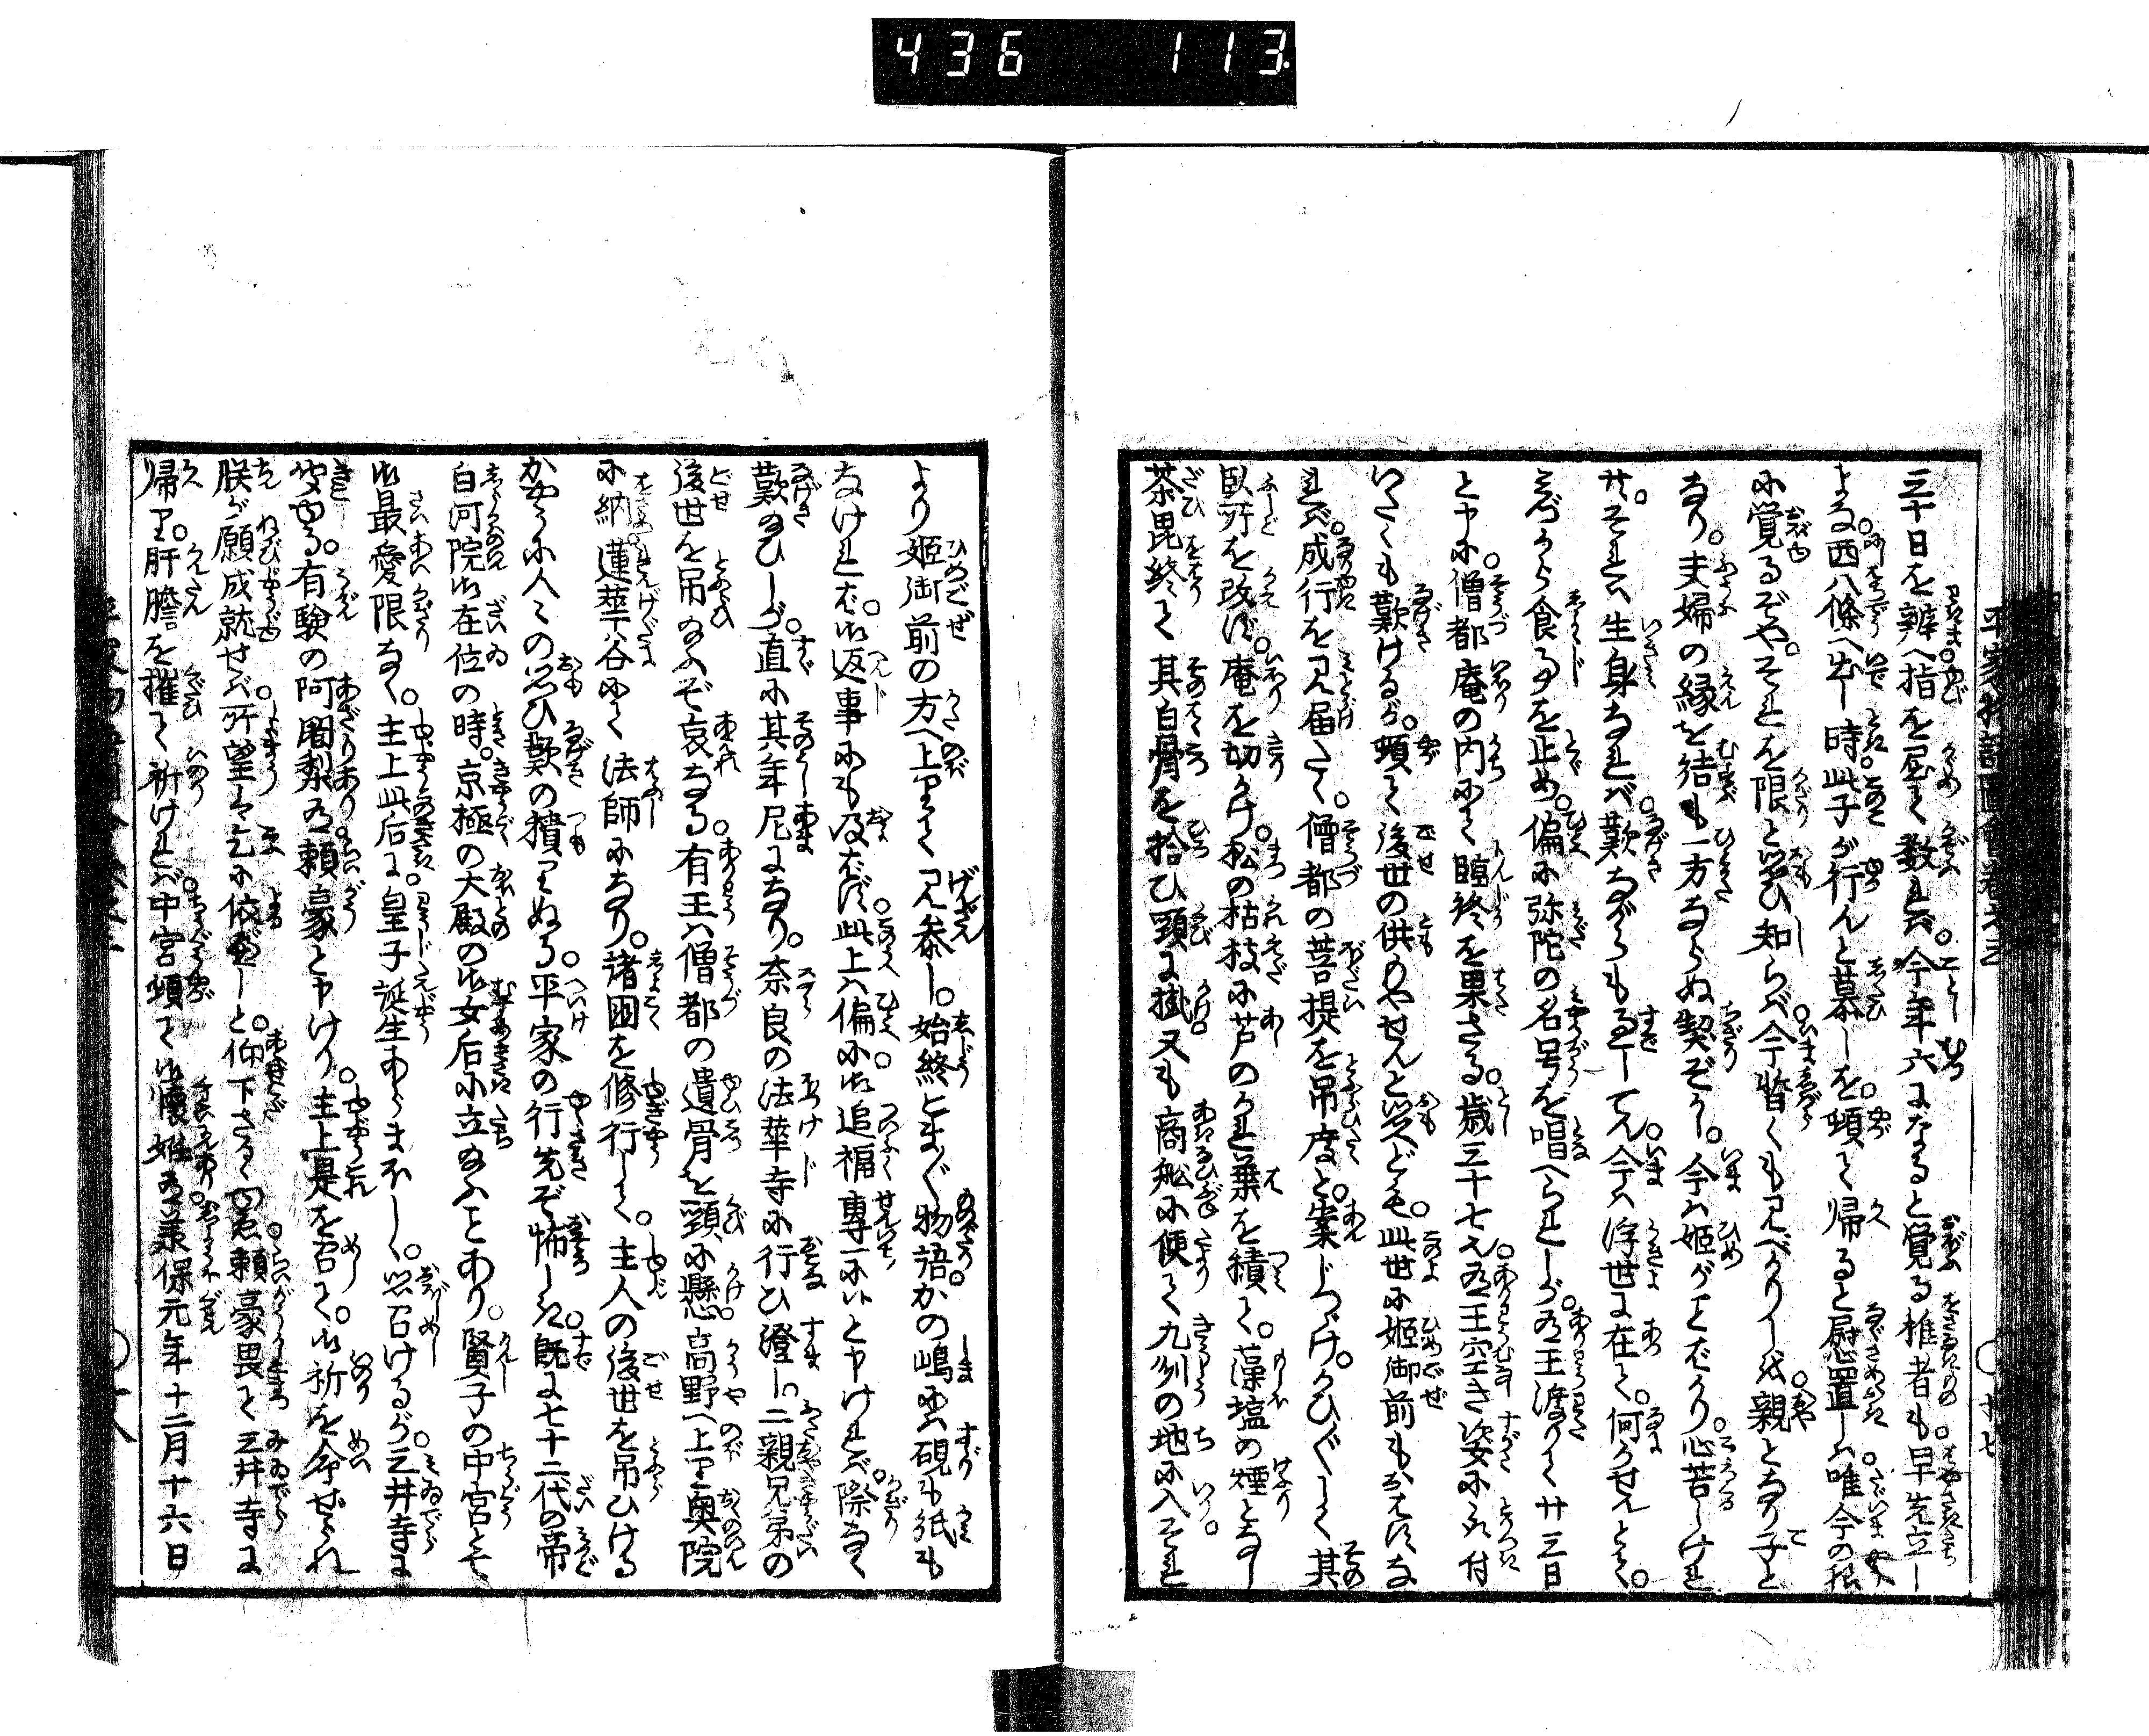 436 113.
平家物語図会巻之三
三十日を辨へ指を屈て数れば。今年六になると覚る稚者も。早先立し
よな。西八條へ出し時此子が行んと慕しを。頓て帰ると慰置しは。唯今の様
に覚るぞや。それを限と思ひ知らば。今暫くも見べかりしを。親となり子と
なり。夫婦の縁を結も一方ならぬ契ぞかし。今は姫がことばかり。心苦しけれ
共。それは生身なれば。歎ながらも過してん。今は浮世に在て。何かせんとて。
みづから食事を止め。偏に弥陀の名号を唱へられしが。有王渡りて廿三日
と申に。僧都庵の内にて臨終を果さる。歳三十七。有王空き姿に取付
いたくも歎けるが。頓て後世の供つかやせんと思へども。此世に姫御前もおはしな
れば。成行を見届たく。僧都の菩提を吊度と。案じつゞけ。かひぐしく其
臥所を改ず。庵を切かけ。松の枯枝に芦のかれ葉を積て。藻塩の煙となし
茶毘終て其白骨を拾ひ頸に掛。又も商舩に便て九州の地に入。それ
より姫御前の方へ上りて見参し。始終とまぐ物語。かの嶋には硯も紙も
なければ。御返事にも及ばず。此上は偏に。御追福専一にいと申ければ。際なく
歎給ひしが。直に其年尼になり。奈良の法華寺に行ひ澄し。二親兄弟の
後世を吊給ふぞ哀なる。有王は僧都の遺骨を頸に懸。高野へ上り奥院
に納。蓮華谷にて法師になり。諸国を修行して。主人の後世を吊ひける
かやうに人々の思ひ歎の積りぬる。平家の行先ぞ怖しき。既に七十二代の帝
白河院御在位の時。京極の大殿の御女后に立給ふことあり。賢子の中宮とて
御最愛限なく。主上此后に皇子誕生あらまほしく。思召けるが。三井寺に
聞ゆる。有験の阿闍梨あり頼豪と申けり。主上是を召て。御祈を命ぜられ
朕が願成就せば。所望は乞に依べしと。仰下さるゝゆゑ。頼豪畏て三井寺に
帰り。肝膽を摧て祈ければ。中宮頓て御懐妊あり。承保元年十二月十六日